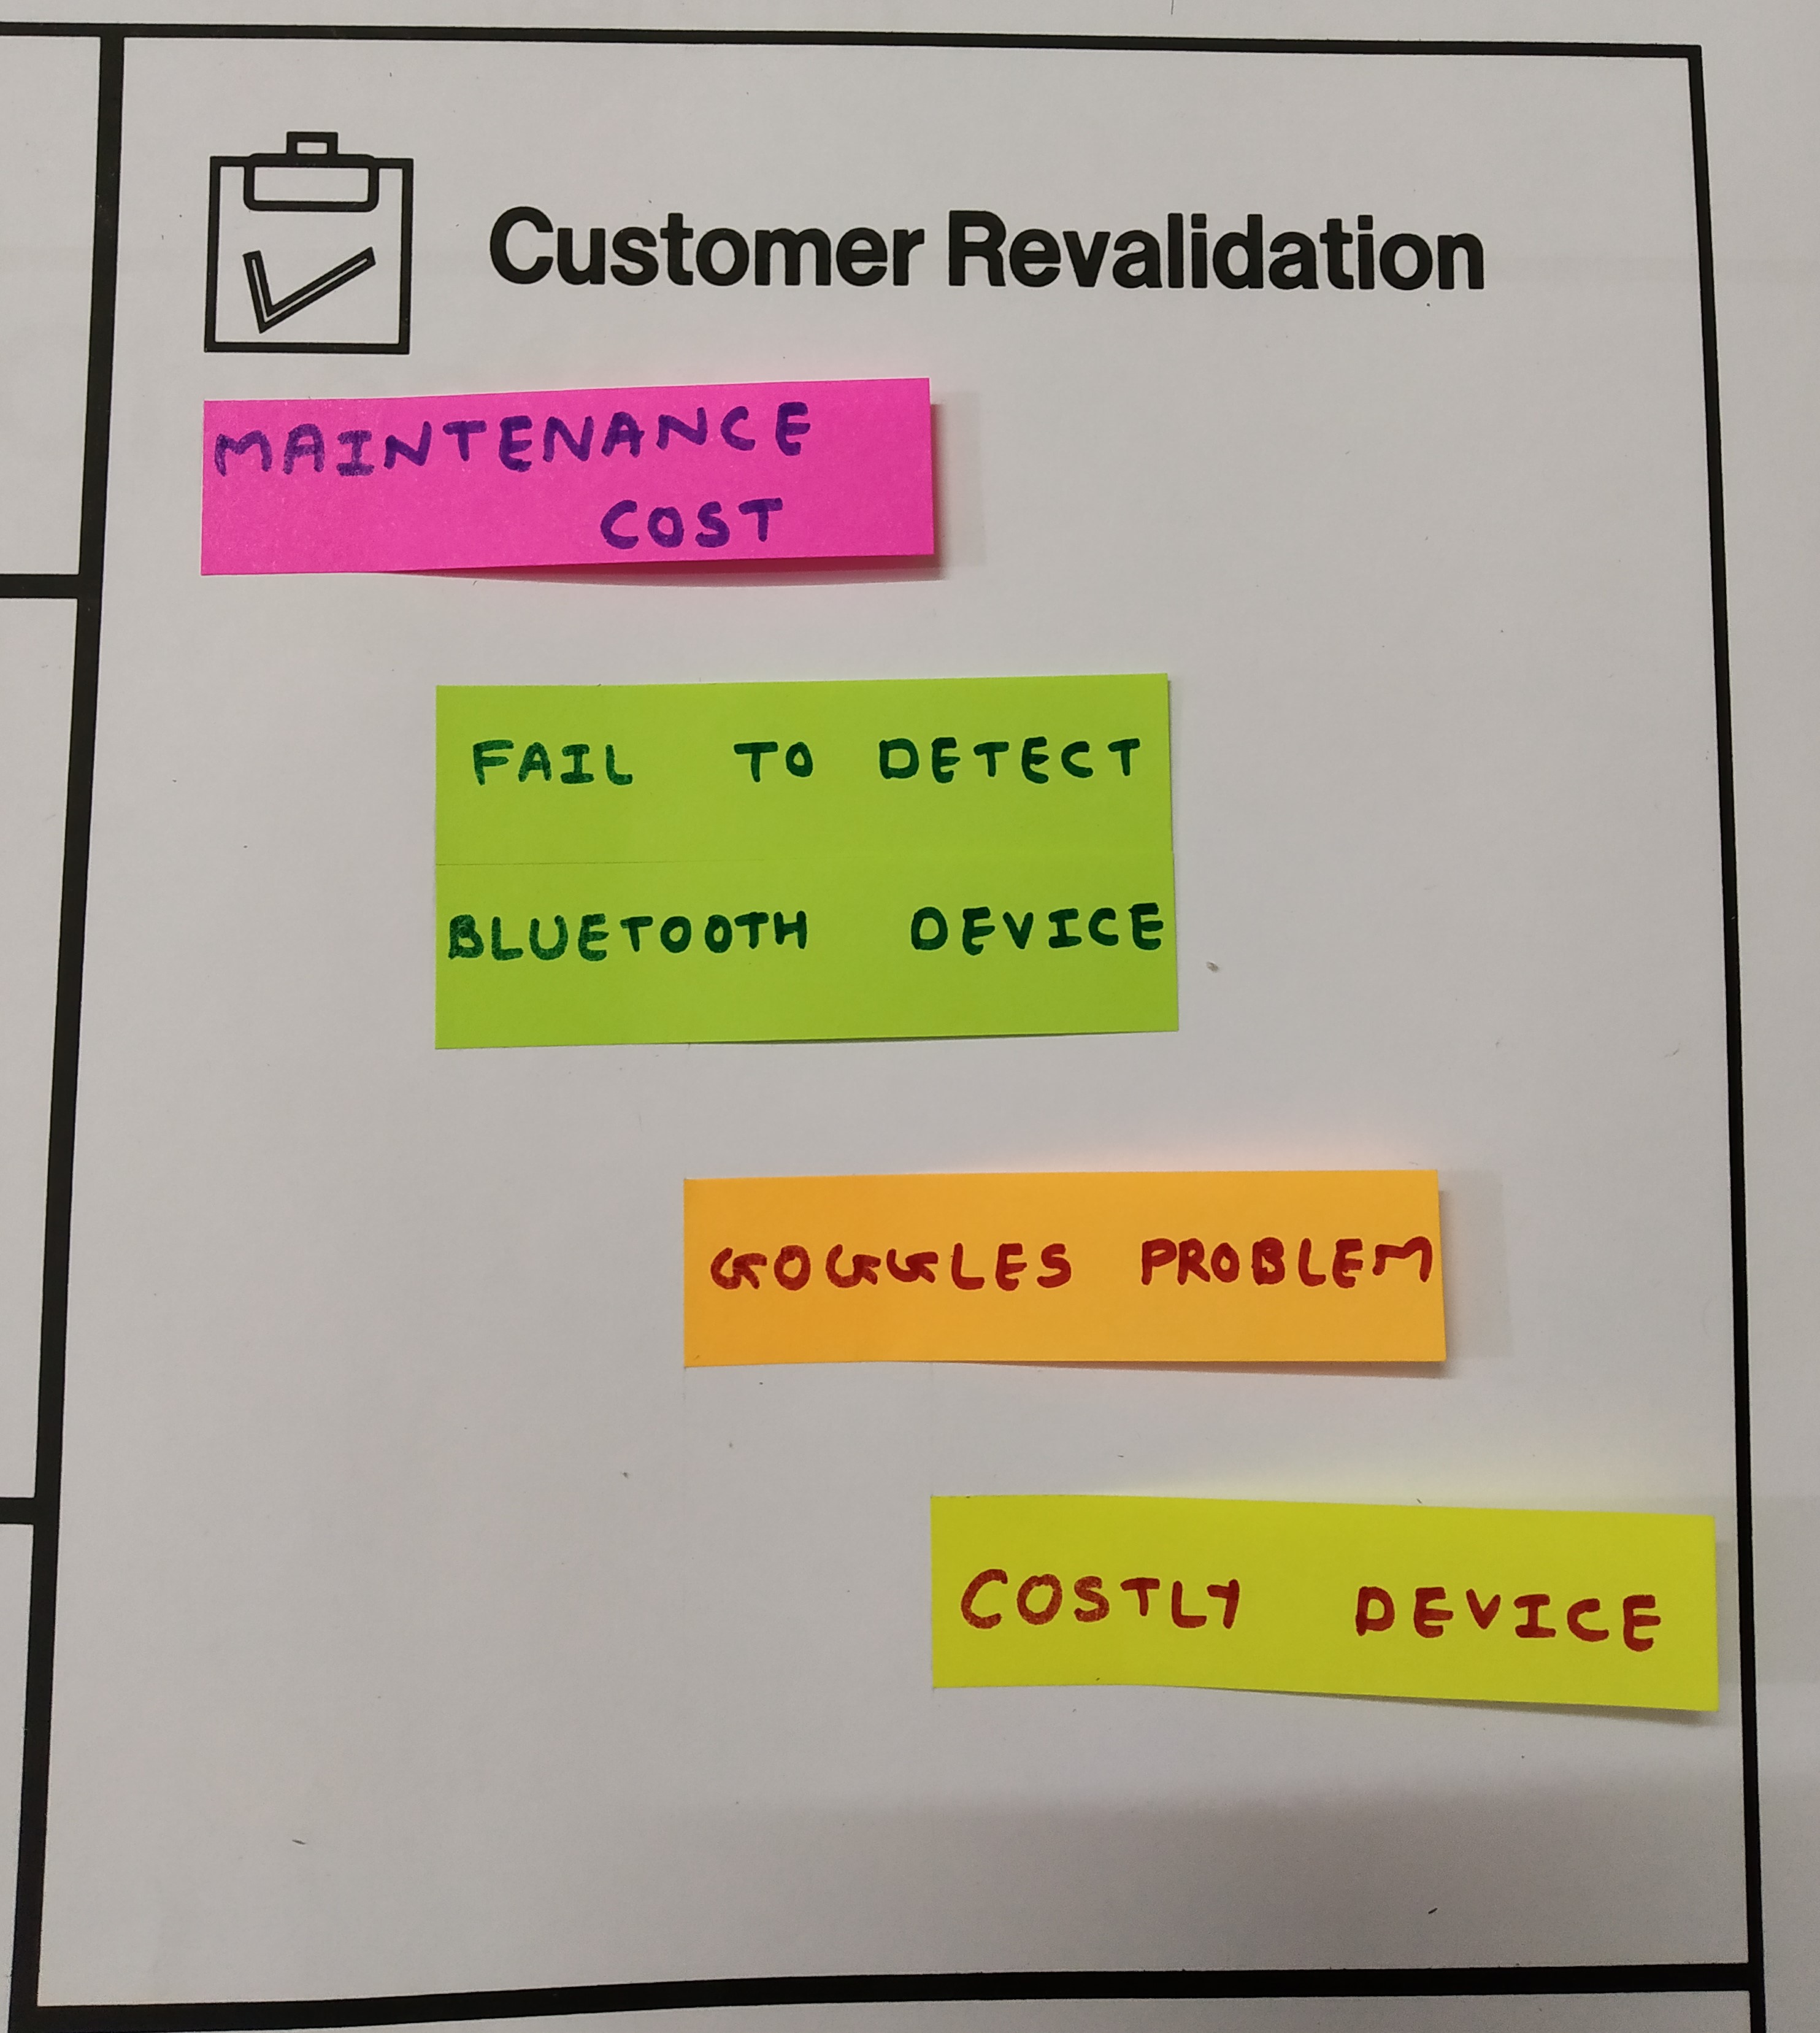 Customer Revalidation
MAINTENANCE
COST
FAIL TO DETECT
BLUETOOTH DEVICE
GOGGLES PROBLEM
COSTLY DEVICE